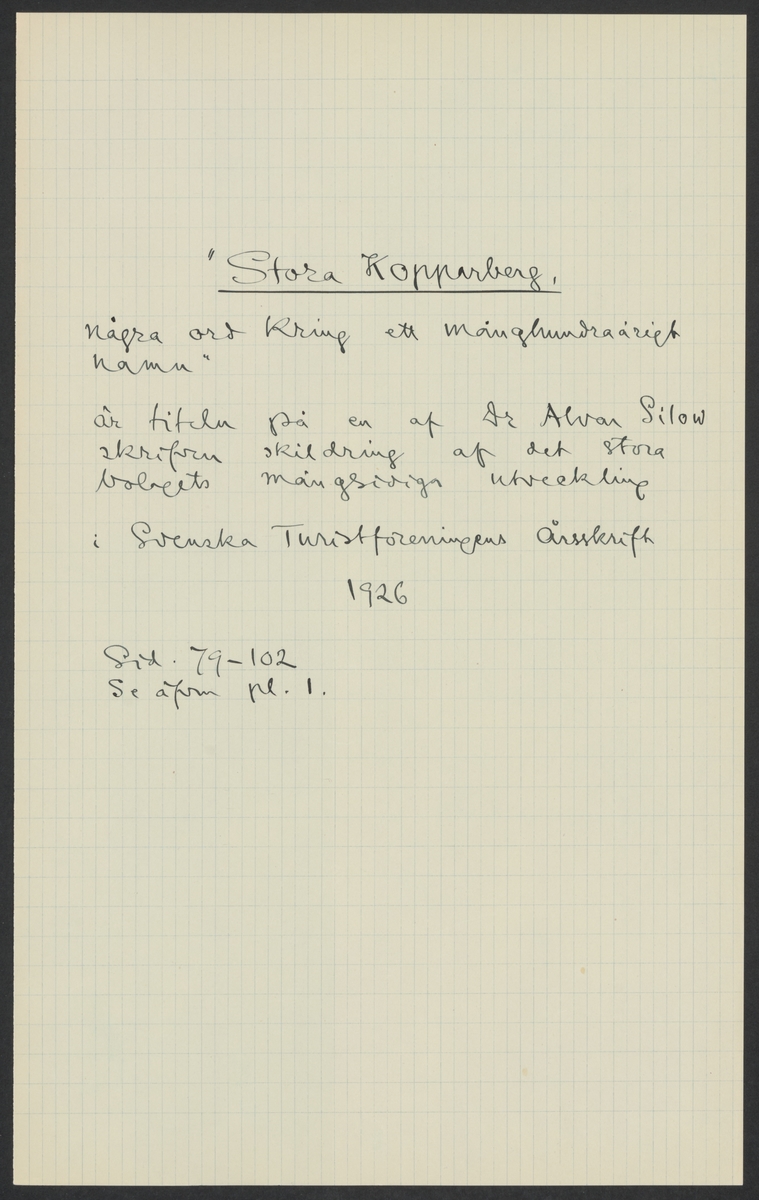 "Stora Kopparberg,
några ord kring ett månghundraårigt
namn"
är titeln på en af Dr Alvar Silow
skrifven skildring af det stora
bolagets mångsidiga utveckling
i Svenska Turistföreningens Årsskrift
1926
Sid. 79-102
Se äfven pl. 1.